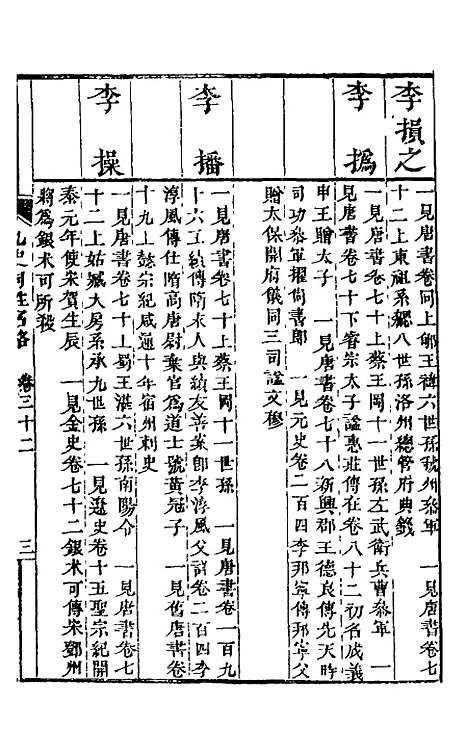 李損之
一見唐書卷同上鄭王禕六世孫號州叅軍 一見唐書卷七
十二上東祖系勰八世孫洛州總管府典籤
李撝
一見唐書卷七十上蔡王岡十一世孫左武衛兵曹叅軍 一
見唐書卷七十下睿宗太子諡惠莊傳在卷八十二初名成義
申王贈太子 一見唐書卷七十八新興郡王德良傳先天時
司功叅軍擢尚書郎 一見元史卷二百四李邦寧傳邦寧父
贈太保開府儀同三司諡文穆
李播
一見唐書卷七十上蔡王岡十一世孫 一見唐書卷一百九
十六王績傳隋末人與績友善葉即李淳風父詳卷二百四李
淳風傳仕隋高唐尉棄官為道士號黄冠子 一見舊唐書卷
十九上懿宗紀咸通十年宿州刺史
李操
一見唐書卷七十上蜀王湛六世孫南陽令 一見唐書卷七
十二上姑臧大房系承九世孫 一見遼史卷十五聖宗紀開
泰元年使宋賀生辰 一見金史卷七十二銀术可傳宋鄧州
將為銀术可所殺
九史同姓名略 卷三十二
三